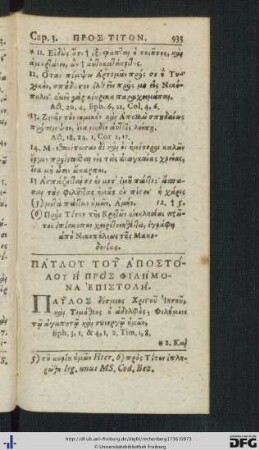 Cap. 3. ΠΡΟΣ ΤΙΤΟΝ. 933
11. Εἰδὼς ὅτι † ἐξέστραπται ὁ τοιοῦτος, καὶ
ἁμαρτάνει, ὢν † αὐτοκατάκριτος.
12. Ὅταν πέμψω Ἀρτεμᾶν πρός σε ἢ Τυ-
χικὸν, σπούδασον ἐλθεῖν πρός με εἰς Νικό-
πολιν· ἐκεῖ γὰρ κέκρικα παραχειμάσαι.
Act. 20, 4. Eph. 6, 21. Col. 4, 6.
13. Ζηνᾶν τὸν νομικὸν καὶ Ἀπολλὼ σπουδαίως
πρόπεμψον, ἵνα μηδὲν αὐτοῖς λείπῃ.
Act. 18, 24. 1. Cor. 1, 12.
14. Μανθανέτωσαν δὲ καὶ οἱ ἡμέτεροι καλῶν
ἔργων προΐστασθαι εἰς τὰς ἀναγκαίας χρείας,
ἵνα μὴ ὦσιν ἄκαρποι.
15. Ἀσπάζονταί σε οἱ μετ' ἐμοῦ πάντες· ἄσπα-
σαι τοὺς φιλοῦντας ἡμᾶς ἐν πίστει· ἡ χάρις
(5) μετὰ πάντων ὑμῶν. Ἀμήν. 12. † 5.
(6) Πρὸς Τίτον τῆς Κρητῶν ἐκκλησίας πρῶ-
τον ἐπίσκοπον χειροτονηθέντα, ἐγράφη
ἀπὸ Νικοπόλεως τῆς Μακε-
δονίας.
ΠΑΥΛΟΥ ΤΟΥ ΑΠΟΣΤΟ-
ΛΟΥ Η ΠΡΟΣ ΦΙΛΗΜΟ-
ΝΑ ΕΠΙΣΤΟΛΗ.
ΠΑΥΛΟΣ δέσμιος Χριστοῦ Ἰησοῦ,
καὶ Τιμόθεος ὁ ἀδελφὸς, Φιλήμονι
τῷ ἀγαπητῷ καὶ συνεργῷ ἡμῶν,
Eph. 3, 1. & 4, 1. 2. Tim. 1, 8.
2. Καὶ
5) τοῦ κυρίου ἡμῶν Hier. 6) πρὸς Τίτον ἐπλη-
ρώθη leg. unus MS. Cod. Bez.
http://dl.ub.uni-freiburg.de/diglit/rechenberg1736/0973
© Universitätsbibliothek Freiburg